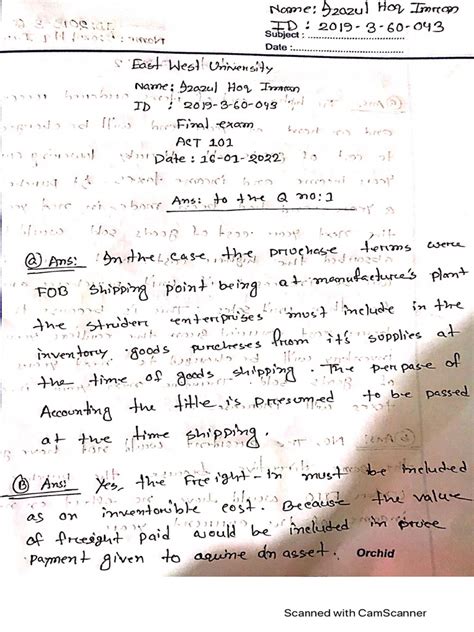 Name: Azazul Hoq Imran
ID : 2019-3-60-043
Subject :
Date :
East West University
Name: Azazul Hoq Imran
ID : 2019-3-60-043
Final exam
ACT 101
Date : 16-01-2022
Ans: to the Q no: 1
(a) Ans: In the case, the pruchase terms were
FOB shipping point being at manufacture's plant
the strider enterprises must include in the
inventory goods purcheses from it's supplies at
the time of goods shipping. The perpase of
Accounting the title is presumed to be passed
at the time shipping.
(B) Ans: Yes, the Freight-in must be included
as an inventorible cost. Because the value
of freight paid would be included in
payment given to an asset.
Orchid
Scanned with CamScanner